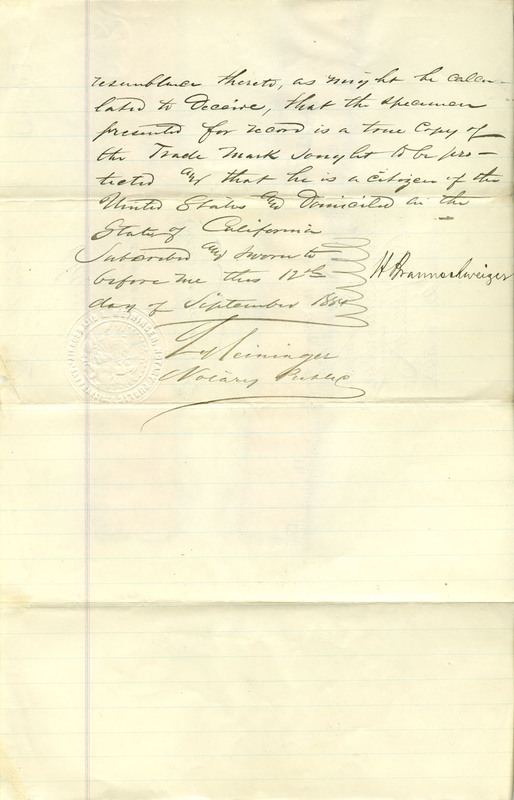 resemblance thereto, as might be calcu-
lated to deceive, that the specimen
presented for record is a true copy of
the Trade Mark sought to be pro-
tected and that he is a citizen of the
United States and Domiciled in the
State of California
Subscribed and sworn to
before me this 12th
day of September 1884
H Braunschweiger
Meininger
Notary Public